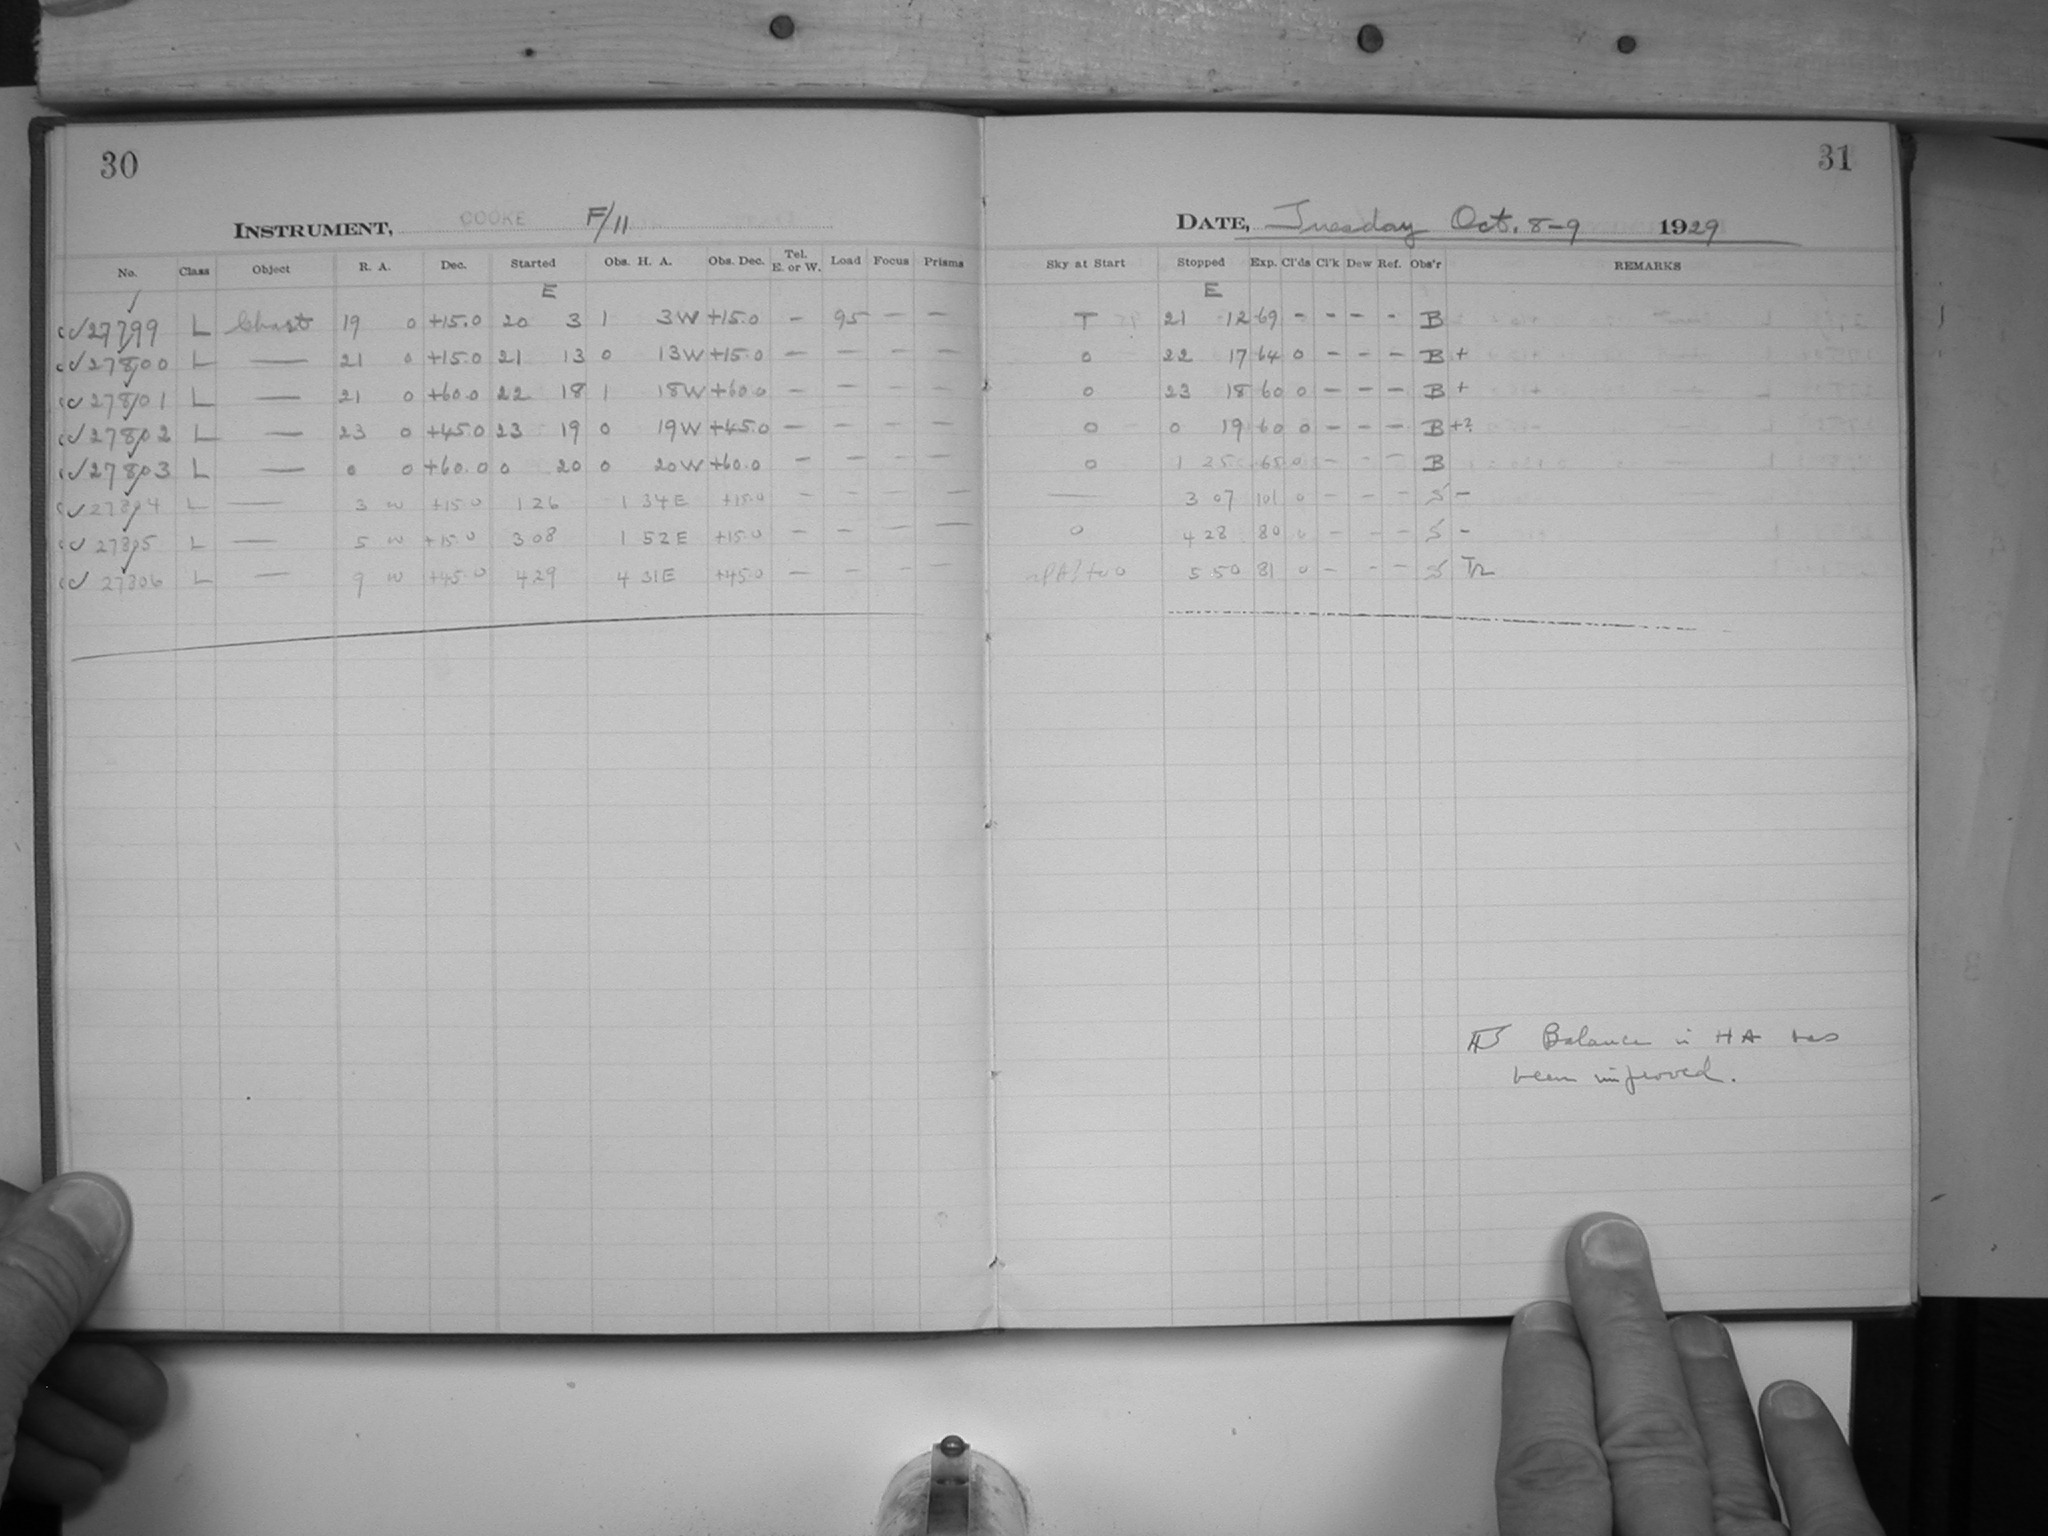 30
31
INSTRUMENT, COOKE F/11
DATE, Tuesday Oct. 8-9 1929
No. Class Object R. A. Dec. Started Obs. H. A. Obs. Dec. Tel. E. or W. Load Focus Prisms Sky at Start Stopped Exp. Cl'ds Cl'k Dew Ref. Obs'r REMARKS
E E
27799 L Chart 19 0 +15.0 20 3 1 3W +15.0 - 95 - - T 21 12 69 - - - - B
27800 L — 21 0 +15.0 21 13 0 13W +15.0 - - - - 0 22 17 64 0 - - - B +
27801 L — 21 0 +60.0 22 18 1 18W +60.0 - - - - 0 23 18 60 0 - - - B +
27802 L — 23 0 +45.0 23 19 0 19W +45.0 - - - - 0 0 19 60 0 - - - B +?
27803 L — 0 0 +60.0 0 20 0 20W +60.0 - - - - 0 1 25 65 0 - - - B
27804 L — 3 +15.0 1 26 1 34E +15.0 - - - - — 3 07 101 0 - - - S -
27805 L — 5 +15.0 3 08 1 52E +15.0 - - - - 0 4 28 80 0 - - - S -
27806 L — 9 +45.0 4 29 4 31E +45.0 - - - - 5 50 81 0 - - - S
Balance in HA has
been improved.